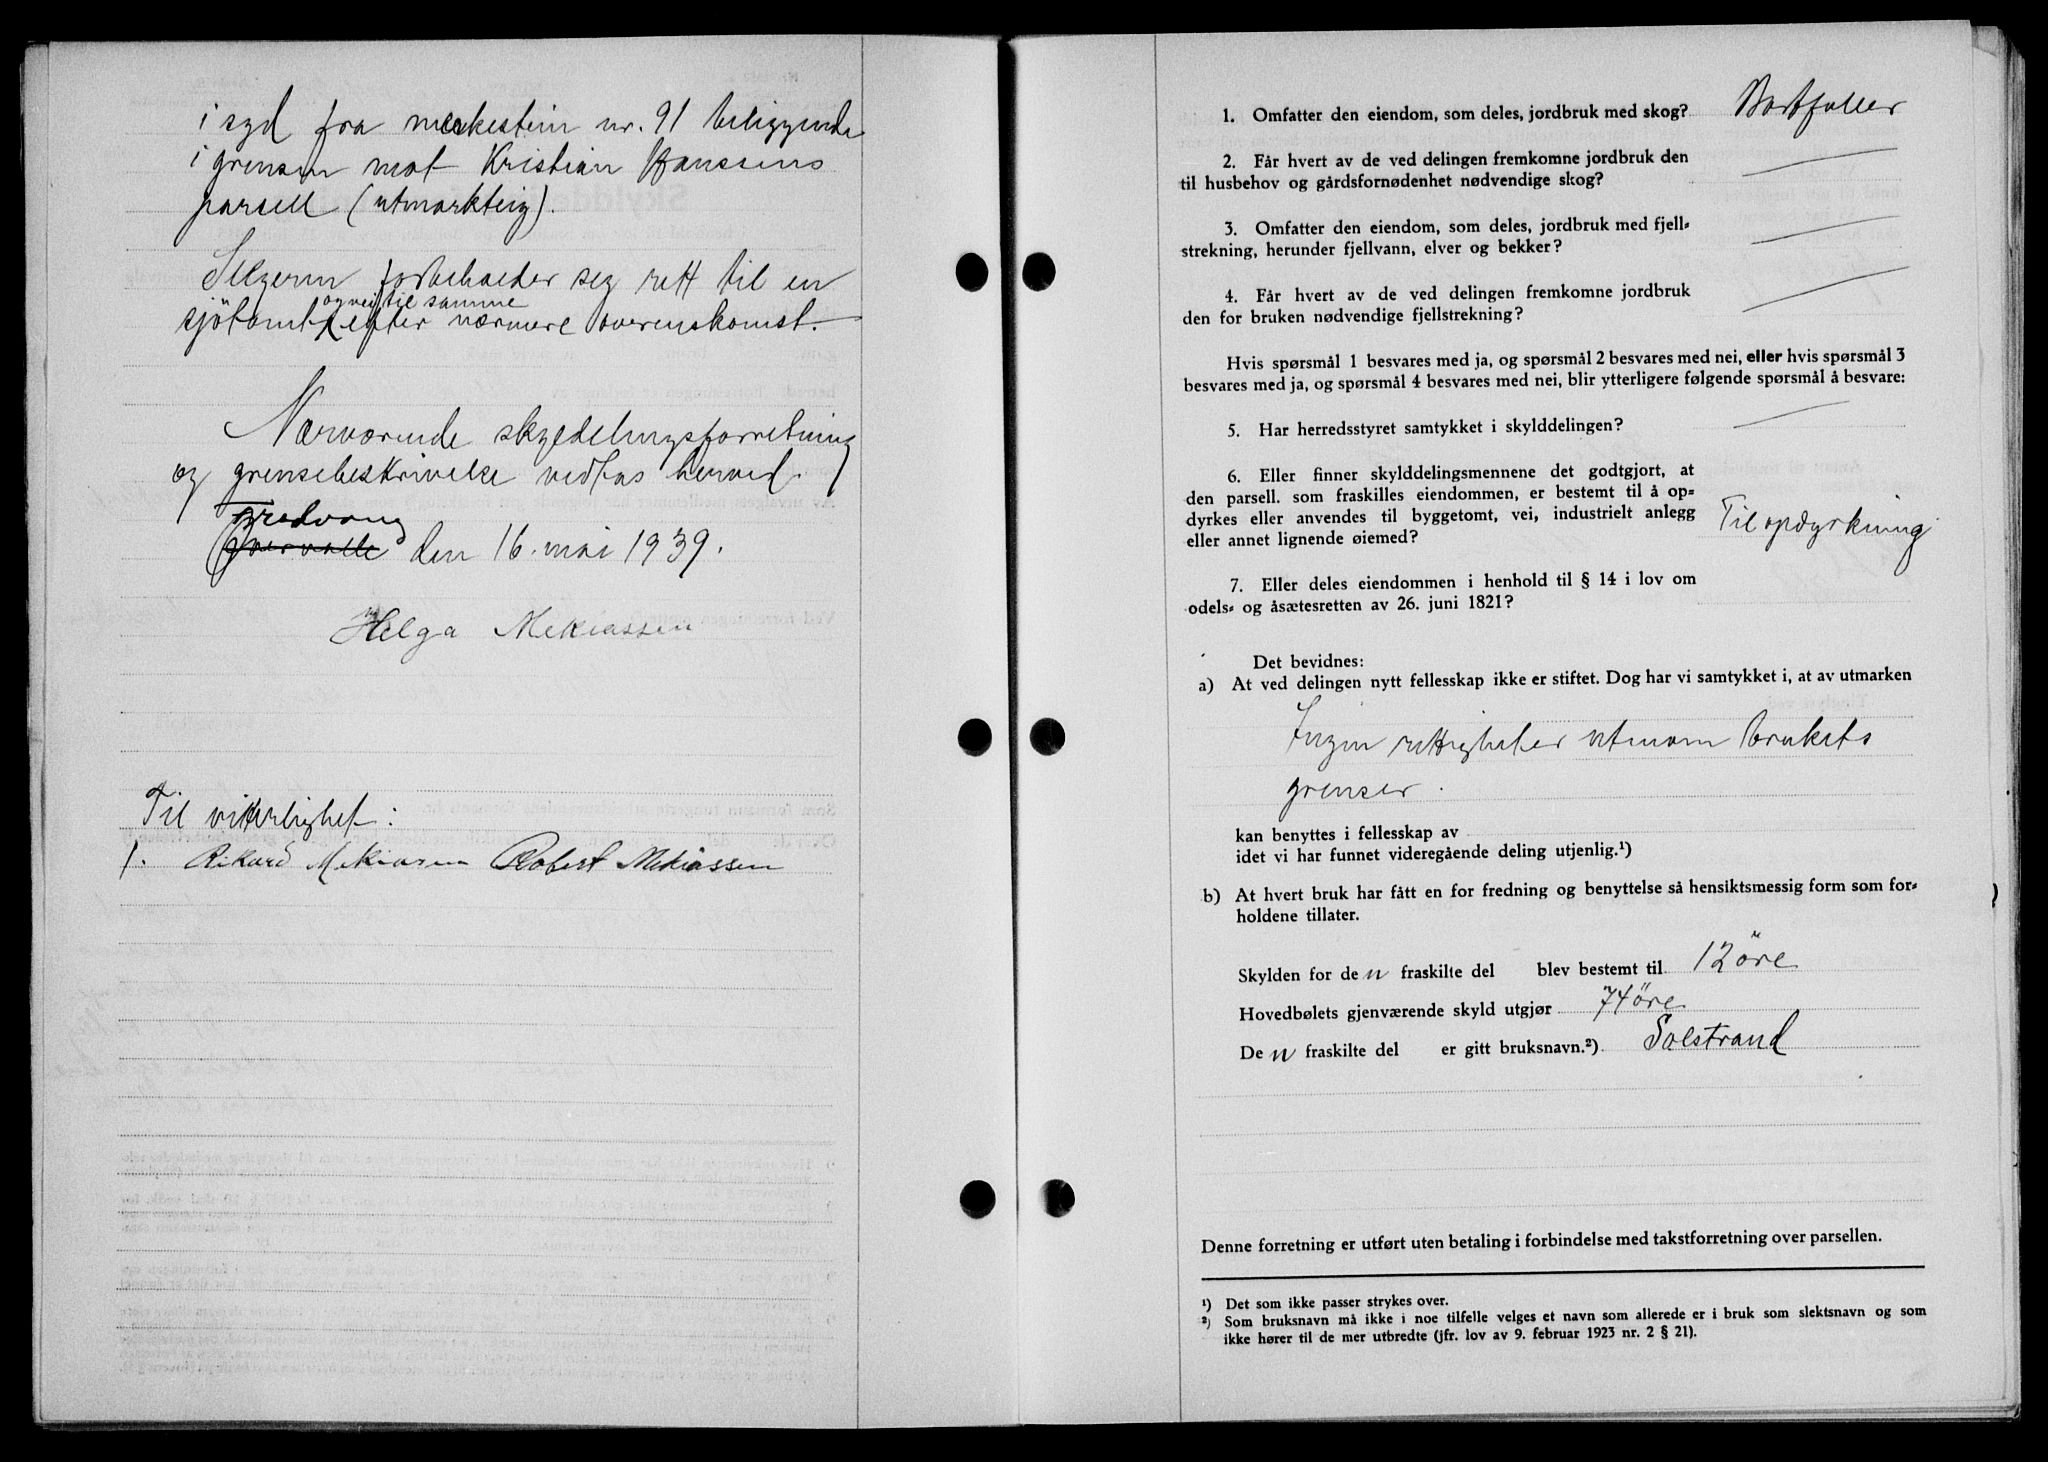 i syd fra merkestein nr. 91 beliggende
i grensen mot Kristian Hanssens
parsell (utmarkteig).
Selgerin forbeholder seg rett til en
og vei til samme
sjötomt efter nærmere overenskomst.
Nærværende skyldelingsforretning
og grensebeskrivelse vedtas herved.
Fredvang
den 16. mai 1939.
Helga Mekiassen
Til vitterlighet:
1. Rikard Mekiassen Robert Mekiassen
1. Omfatter den eiendom, som deles, jordbruk med skog? Bortfaller
2. Får hvert av de ved delingen fremkomne jordbruk den
til husbehov og gårdsfornødenhet nødvendige skog?
3. Omfatter den eiendom, som deles, jordbruk med fjell-
strekning, herunder fjellvann, elver og bekker?
4. Får hvert av de ved delingen fremkomne jordbruk
den for bruken nødvendige fjellstrekning?
Hvis spørsmål 1 besvares med ja, og spørsmål 2 besvares med nei, eller hvis spørsmål 3
besvares med ja, og spørsmål 4 besvares med nei, blir ytterligere følgende spørsmål å besvare:
5. Har herredsstyret samtykket i skylddelingen?
6. Eller finner skylddelingsmennene det godtgjort, at
den parsell. som fraskilles eiendommen, er bestemt til å op-
dyrkes eller anvendes til byggetomt, vei, industrielt anlegg
eller annet lignende øiemed? Til opdyrkning
7. Eller deles eiendommen i henhold til § 14 i lov om
odels- og åsætesretten av 26. juni 1821?
Det bevidnes:
a) At ved delingen nytt fellesskap ikke er stiftet. Dog har vi samtykket i, at av utmarken
Ingen rettigheter utenom brukets
grenser.
kan benyttes i fellesskap av
idet vi har funnet videregående deling utjenlig.¹)
b) At hvert bruk har fått en for fredning og benyttelse så hensiktsmessig form som for-
holdene tillater.
Skylden for den fraskilte del blev bestemt til 12 öre
Hovedbølets gjenværende skyld utgjør 74 öre
Den fraskilte del er gitt bruksnavn.²) Solstrand
Denne forretning er utført uten betaling i forbindelse med takstforretning over parsellen.
¹) Det som ikke passer strykes over.
²) Som bruksnavn må ikke i noe tilfelle velges et navn som allerede er i bruk som slektsnavn og som
ikke hører til de mer utbredte (jfr. lov av 9. februar 1923 nr. 2 § 21).